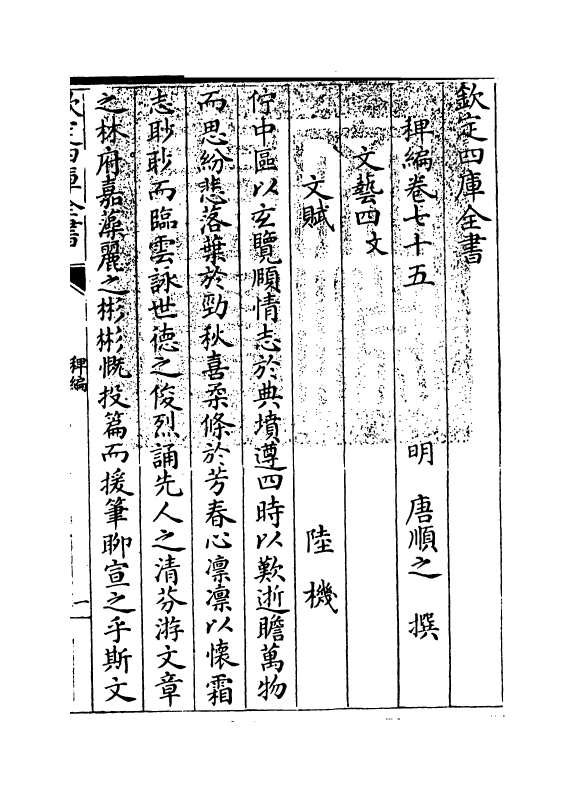 欽定四庫全書
稗編卷七十五　明　唐順之　撰
文藝四文
文賦　陸機
佇中區以玄覽頤情志於典墳遵四時以歎逝瞻萬物
而思紛悲落葉於勁秋喜柔條於芳春心凛凛以懷霜
志眇眇而臨雲詠世德之俊烈誦先人之清芬游文章
之林府嘉藻麗之彬彬慨投篇而援筆聊宣之乎斯文
欽定四庫全書
稗編
一